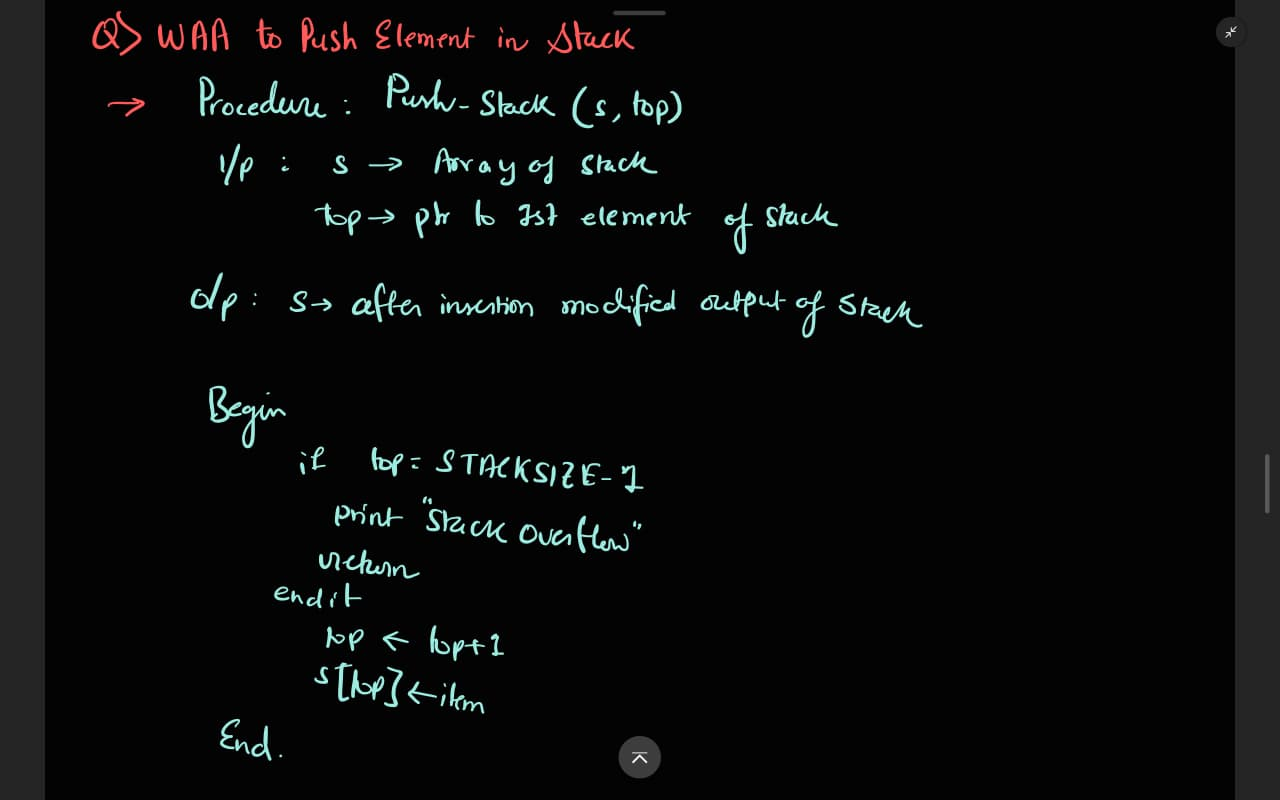 Q> WAA to Push Element in Stack
→ Procedure : Push-Stack (s, top)
I/p : s → Array of stack
top → ptr to 1st element of stack
o/p : s → after insertion modified output of stack
Begin
if top = STACKSIZE-1
print "Stack Overflow"
return
endif
top ← top+1
s[top] ← item
End.